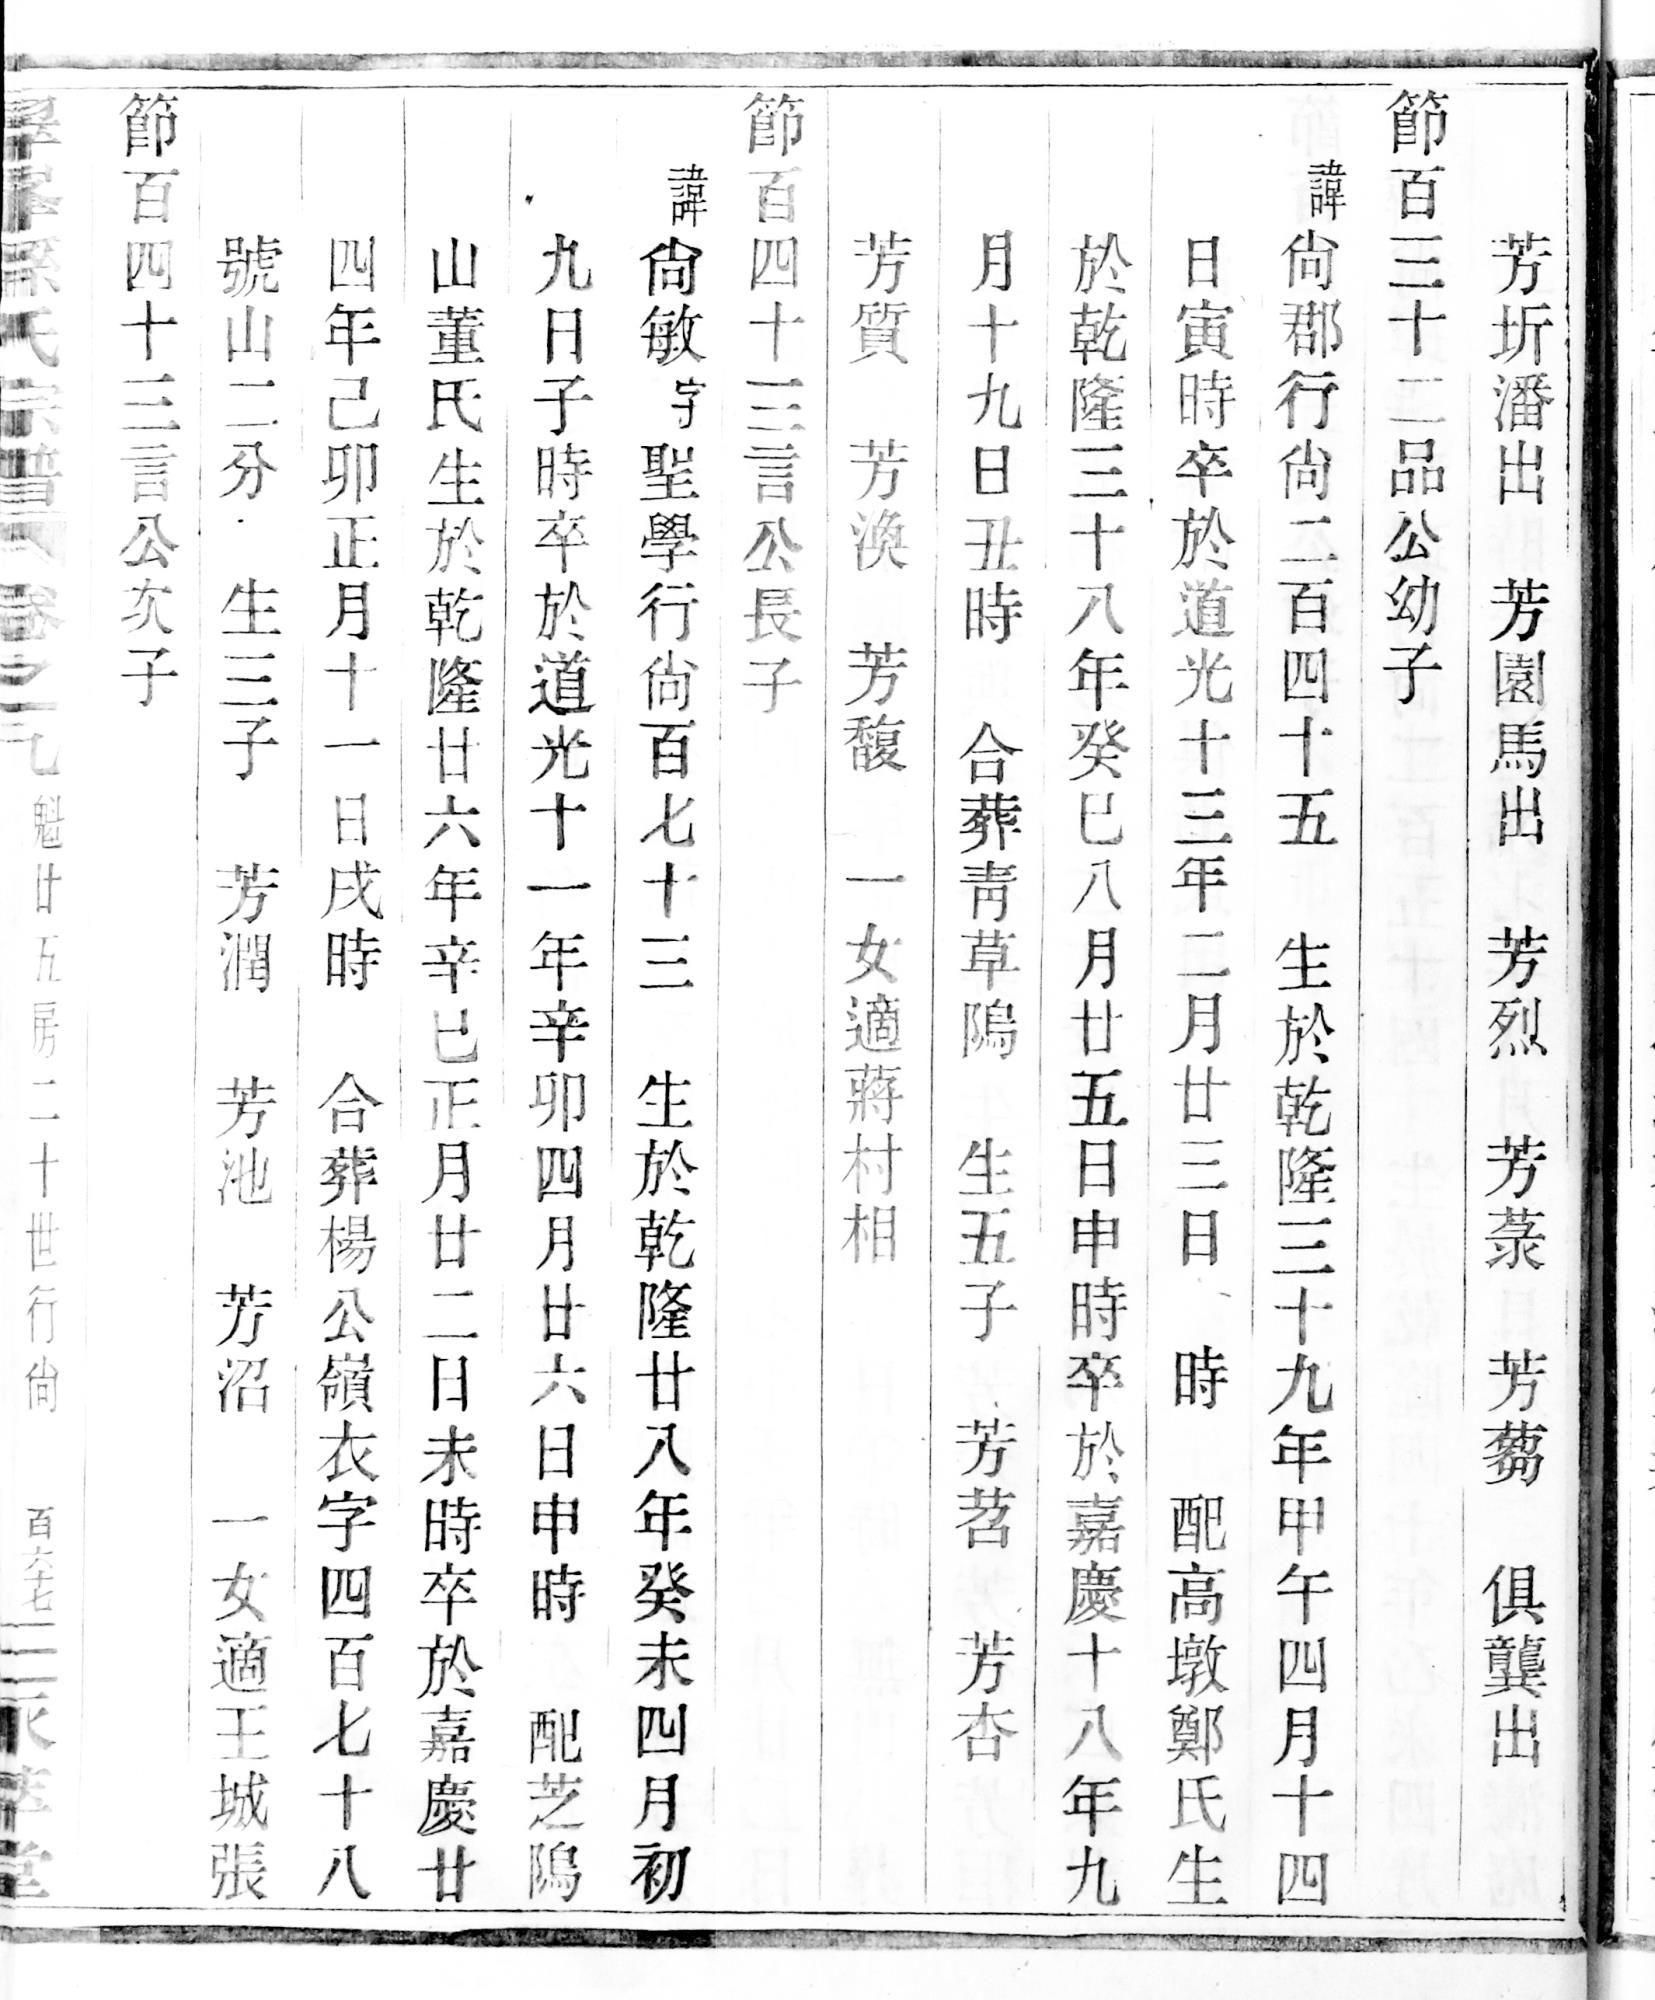 芳圻潘出　芳園馬出　芳烈　芳菉　芳蒭　俱龔出
節百三十二品公幼子
諱尙郡行尙二百四十五　生於乾隆三十九年甲午四月十四
日寅時卒於道光十三年二月廿三日　時　配高墩鄭氏生
於乾隆三十八年癸巳八月廿五日申時卒於嘉慶十八年九
月十九日丑時　合葬靑草隝　生五子　芳茗　芳杏
芳質　芳渙　芳馥　一女適蔣村相
節百四十三言公長子
諱尙敏字聖學行尙百七十三　生於乾隆廿八年癸未四月初
九日子時卒於道光十一年辛卯四月廿六日申時　配芝隝
山董氏生於乾隆廿六年辛巳正月廿二日未時卒於嘉慶廿
四年己卯正月十一日戌時　合葬楊公嶺衣字四百七十八
號山二分　生三子　芳潤　芳池　芳沼　一女適王城張
節百四十三言公次子
孫氏宗譜　卷之七　魁廿五房二十世行尙　百六十七　堂